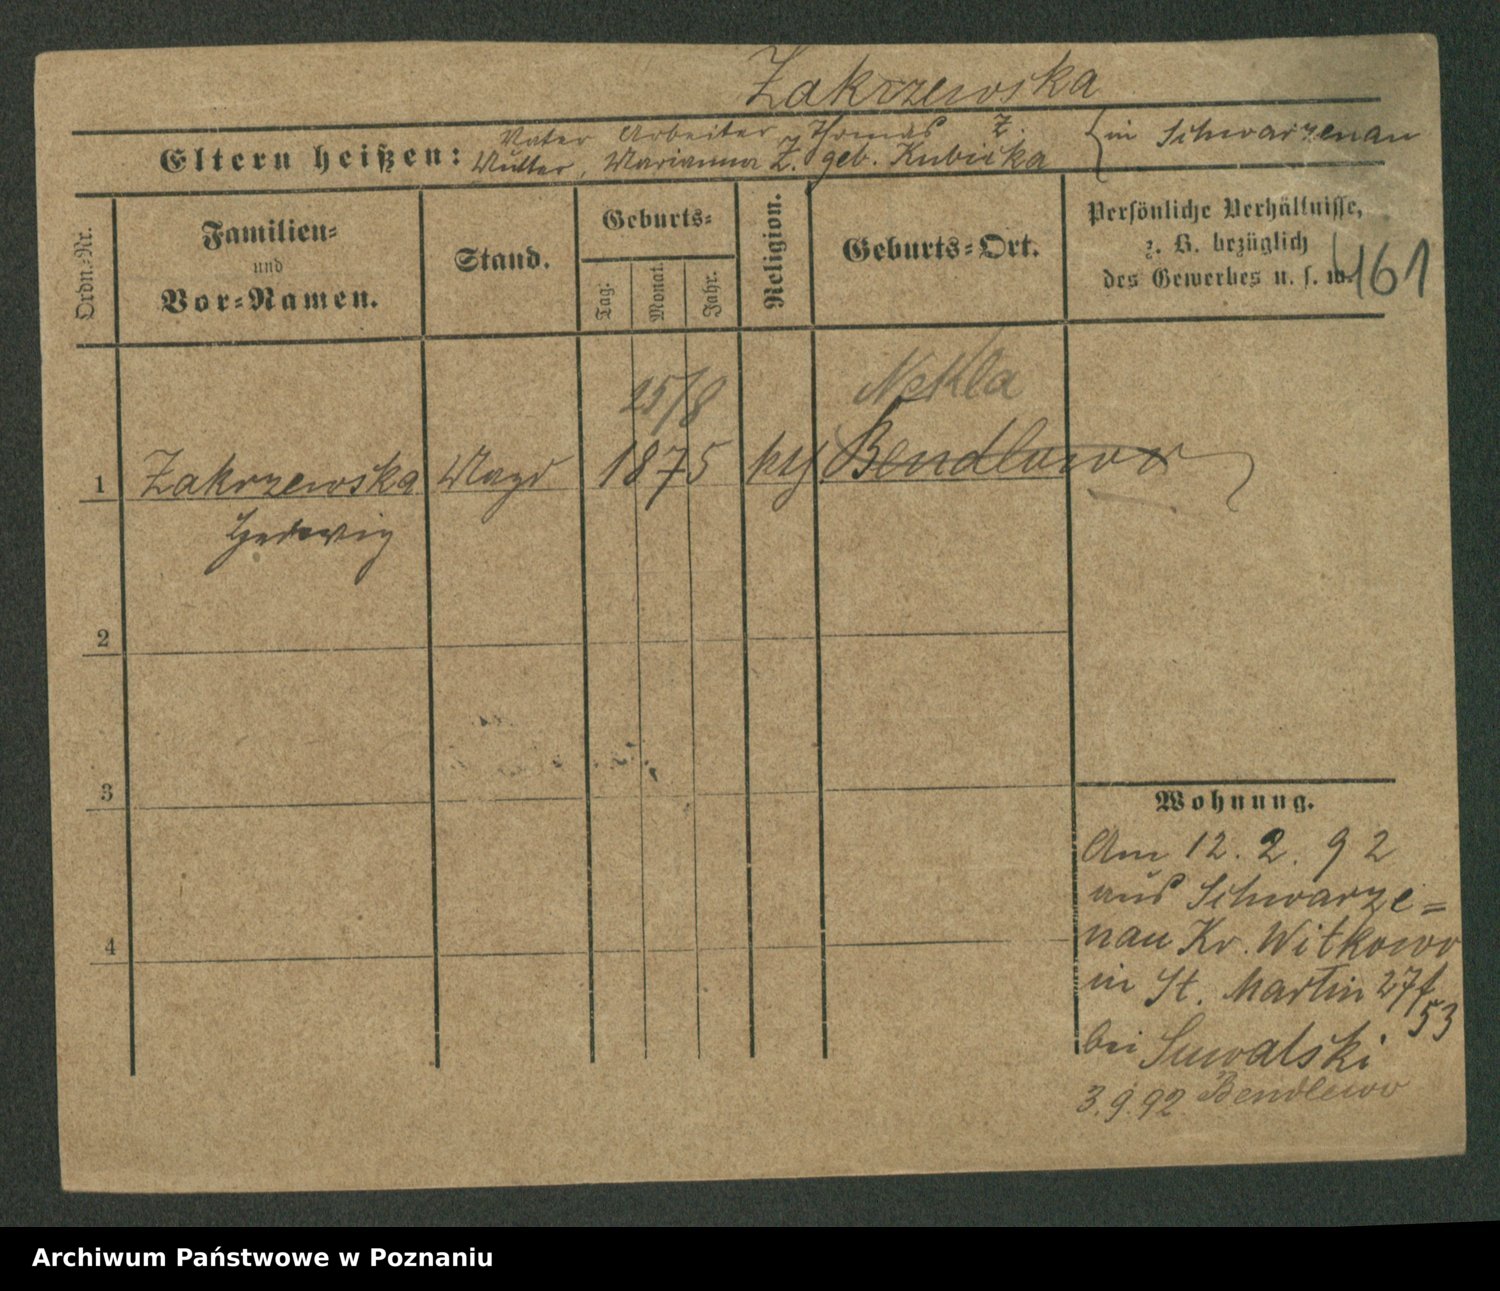 Zakrzewska
Eltern heißen: Vater Arbeiter Thomas Z.
Mutter, Marianna Z. geb. Kubicka
in Schwarzenau
Ordn.-Nr.
Familien-
und
Vor-Namen.
Stand.
Geburts-
Tag.
Monat.
Jahr.
Religion.
Geburts-Ort.
Persönliche Verhältnisse,
z. B. bezüglich
des Gewerbes u. s. w.
161
25/8
Nekla
1 Zakrzewska Magd 1875 kth Bendlewo
Hedwig
2
3
4
Wohnung.
Am 12. 2. 92
aus Schwarze=
nau Kr. Witkowo
in St. Martin 27/
53
bei Suwalski
3.9.92 Bendlewo
Archiwum Państwowe w Poznaniu